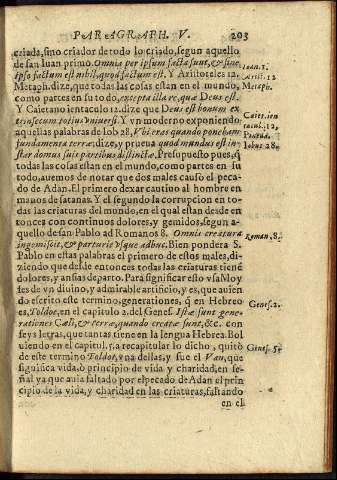 PARAGRAPH. V. 203
criada, sino criador de todo lo criado, segun aquello
de san Iuan primo. Omnia per ipsum facta sunt, & sine
ipso factum est nihil, quod factum est. Y Aristoteles 12.
Metaph. dize, que todas las cosas estan en el mundo,
como partes en su todo, excepta illa re, quæ Deus est.
Y Caietano ientaculo 12. dize que Deus est bonum ex
trinsecum totius vniuersi. Y vn moderno exponiendo
aquellas palabras de Iob 28. Vbi eras quando ponebam
fundamenta terræ, dize, y prueua quod mundus est in-
star domus suis partibus distinctæ. Presupuesto pues, q̃
todas las cosas estan en el mundo, como partes en su
todo, auemos de notar que dos males causò el peca-
do de Adan. El primero dexar cautiuo al hombre en
manos de satanas. Y el segundo la corrupcion en to-
das las criaturas del mundo, en el qual estan desde en
tonces con continuos dolores, y gemidos, segun a-
quello de san Pablo ad Romanos 8. Omnis creatura
ingemiscit, & parturit vsque adhuc. Bien pondera S.
Pablo en estas palabras el primero de estos males, di-
ziendo que desde entonces todas las criaturas tienẽ
dolores, y ansias de parto. Para significar esto vsa Moy
ses de vn diuino, y admirable artificio, y es, que auien
do escrito este termino, generationes, q̃ en Hebreo
es, Toldot, en el capitulo 2. del Genes. Istæ sunt gene-
rationes Cæli, & terræ, quando creatæ sunt, &c. con
seys letras, que tantas tiene en la lengua Hebrea. Bol
uiendo en el capitul. 5. a recapitular lo dicho, quitò
de este termino Toldot, vna dellas, y fue el Vau, que
significa vida, ò principio de vida y charidad, en se-
ñal ya que auia faltado por el pecado de Adan el prin
cipio de la vida, y charidad en las criaturas, faltando
en el
Ioan. 1.
Arist. 12
Metaph.
Caiet. ien
tacu. 12.
Iobus 28.
Roman. 8.
Genes. 2.
Genes. 5.